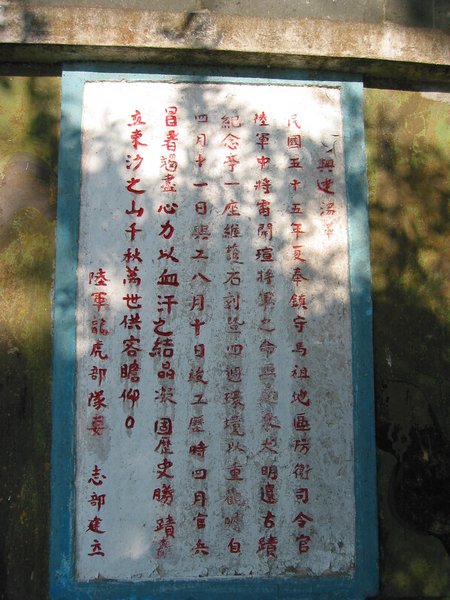 興建沿革
民國五十五年夏奉鎮守馬祖地區防衛司令官
陸軍中將雷開瑄將軍之命興建東犬明遺古蹟
紀念亭一座維護石刻暨四週環境以重觀瞻自
四月十一日興工八月十日竣工歷時四月官兵
冒暑竭盡心力以血汗之結晶凝固歷史勝蹟矗
立東沙之山千秋萬世供客瞻仰。
陸軍龍虎部隊 志部建立